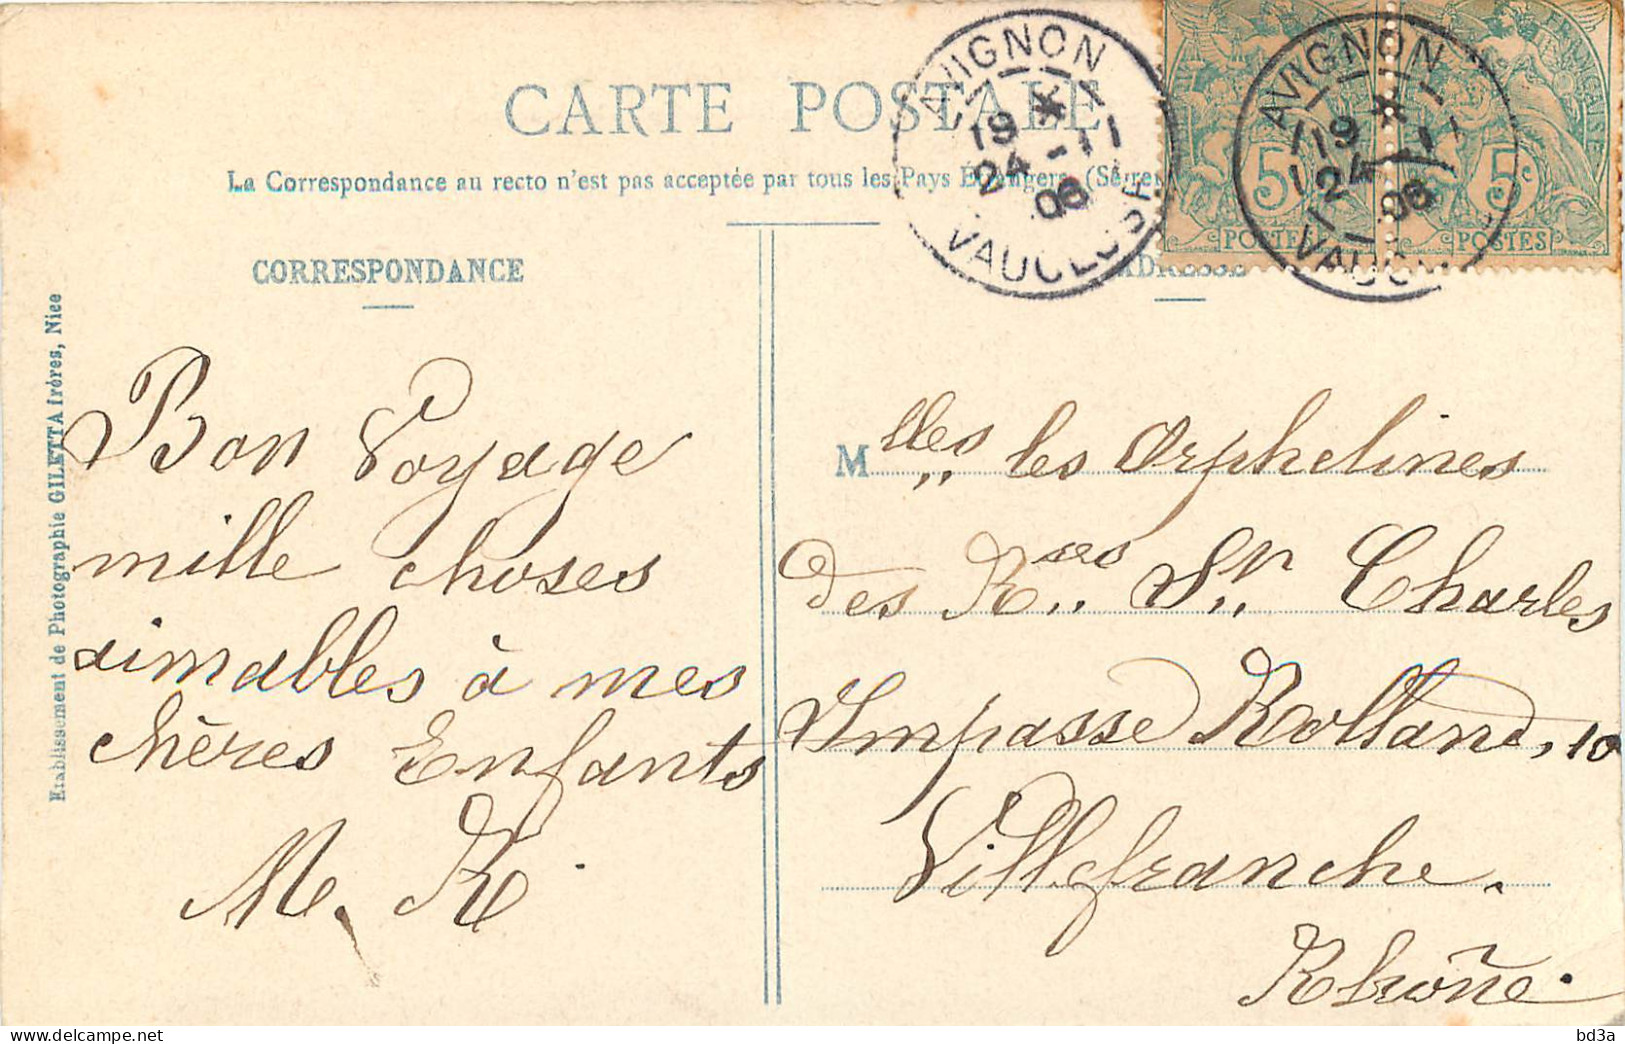 CARTE POSTALE
La Correspondance au recto n'est pas acceptée par tous les Pays Étrangers (Se re
CORRESPONDANCE
ADRESSE
AVIGNON
19 *
24 - 11
06
VAUCLUSE
AVIGNON
19 *
24 - 11
06
VAUCL
5c
POSTES
FRANÇAISE
5c
POSTES
Etablissement de Photographie GILETTA frères, Nice
Bon Voyage
mille choses
aimables à mes
chères Enfants
M. R.
Mlles les Orphelines
des R... St Charles
Impasse Rolland, 10
Villefranche.
Rhône.
bd3a